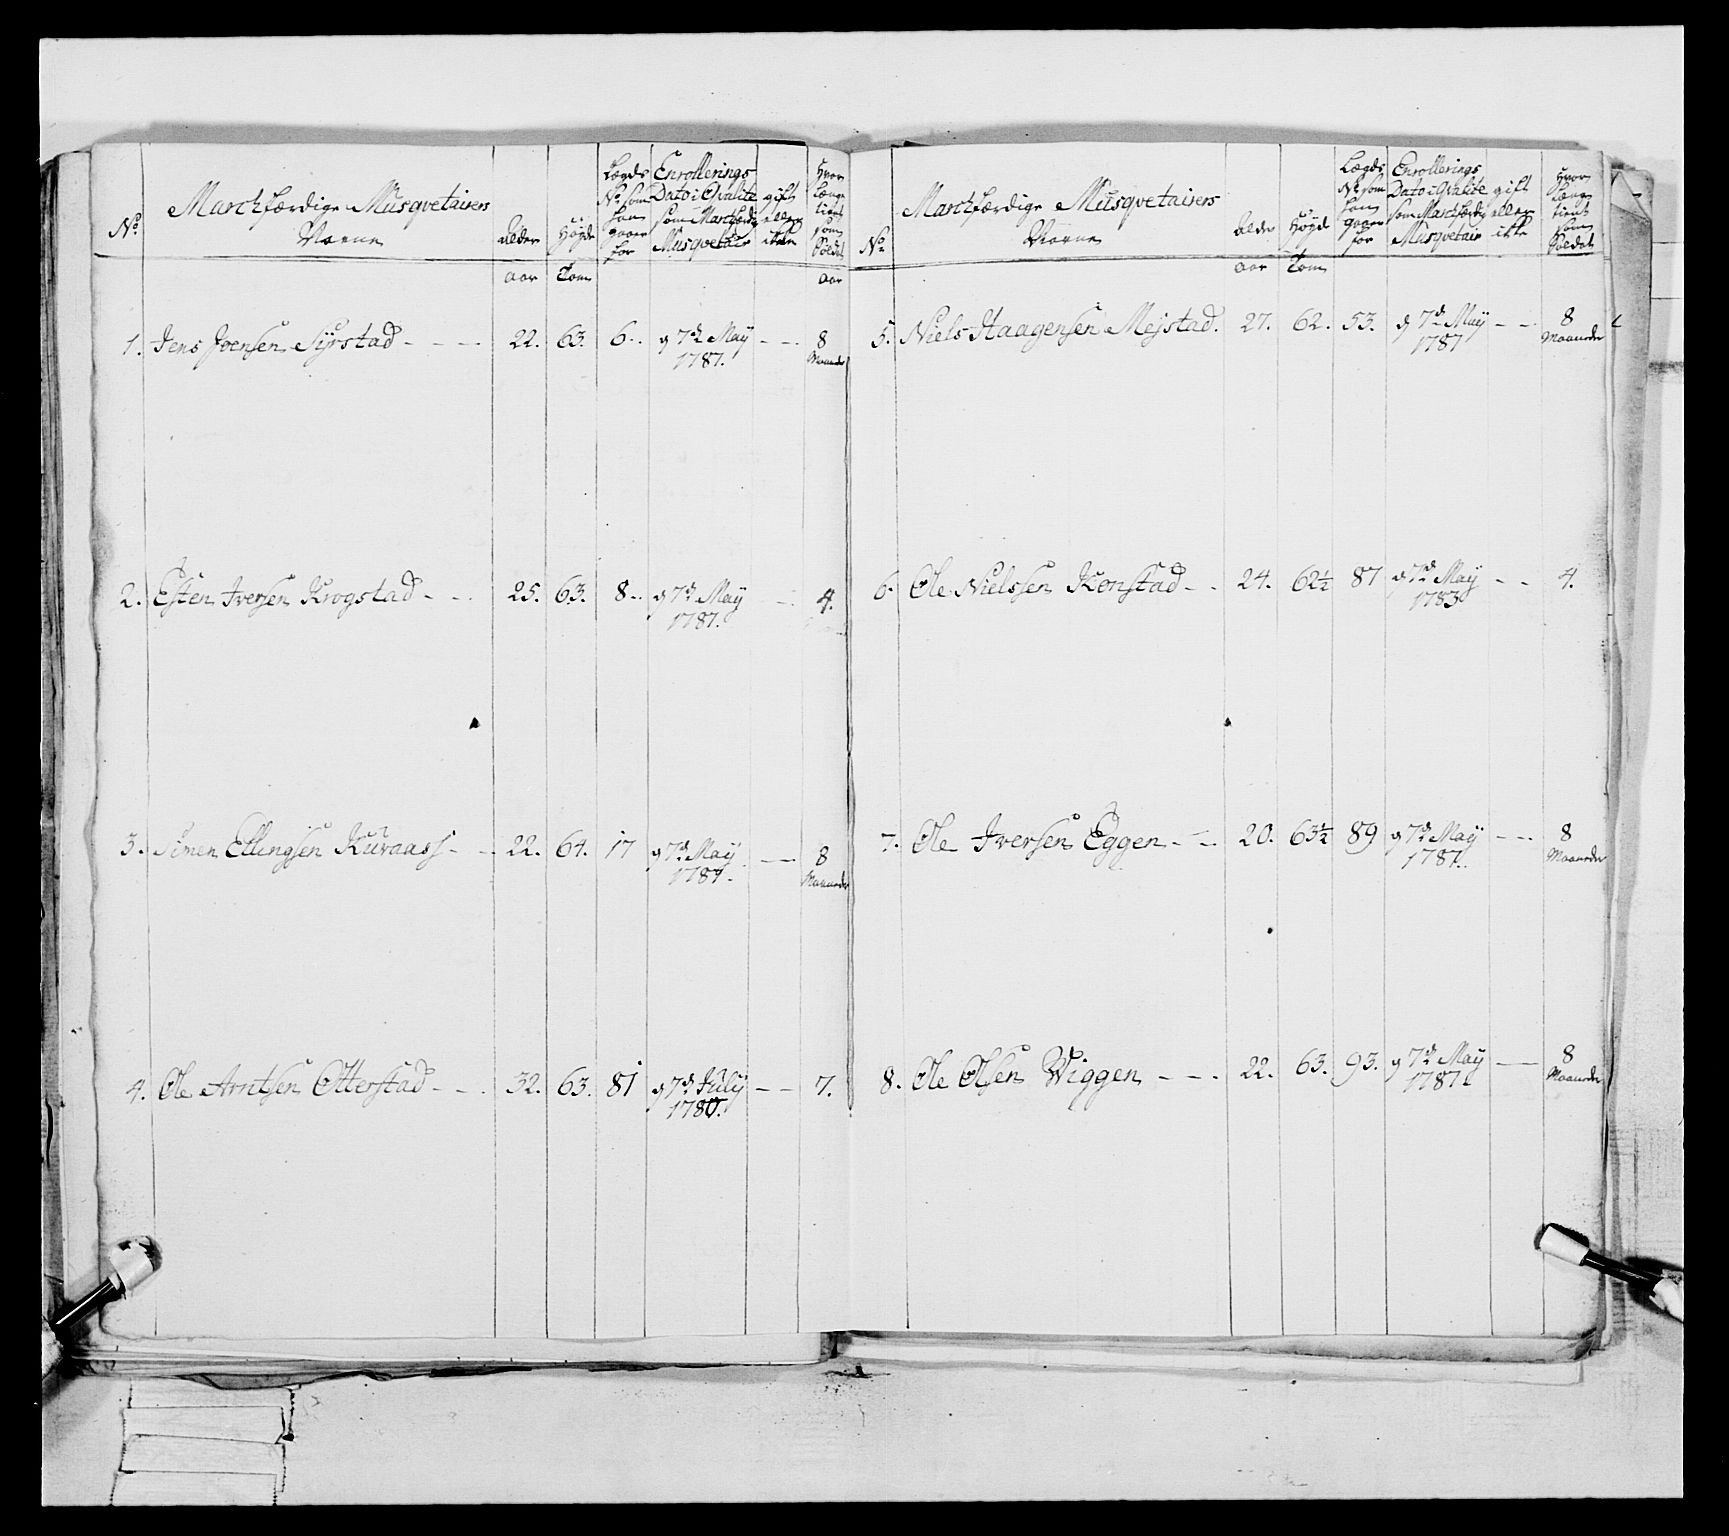 No. Marchfærdige Musqvetairers Navne Alder Høyde Lægds No. som han gaaer for Enrollerings Dato i Qvalite som Marchfærdig Musqvetair gift eller ikke Hvor længe tient som Soldat
Aar Tom Aar
1. Jens Joensen Syrstad - - - 22. 63. 6.. d 7de May - - - 8
1787. Maaneder
2. Esten Iversen Krogstad - - - 25. 63. 8.. d 7de May - - 4.
1787.
3. Simen Ellingsen Kuraass - - 22. 64. 17 d 7de May - - 8
1787. Maaneder
4. Ole Arntsen Otterstad - - - 32. 63. 81 d 7de July - - 7.
1780.
No. Marchfærdige Musqvetairers Navne Alder Høyde Lægds No. som han gaaer for Enrollerings Dato i Qvalite som Marchfærdig Musqvetair gift eller ikke Hvor længe tient som Soldat
Aar Tom
5. Niels Haagensen Mejstad. 27. 62. 53. d 7de May - - 8
1787 Maaneder
6. Ole Nielssen Konstad - - 24. 62½ 87 d 7de May - - 4.
1783
7. Ole Iversen Eggen - - - 20. 63½ 89 d 7de May - - 8
1787. Maaneder
8. Ole Olsen Wiggen - - - 22. 63. 93. d 7de May - - 8
1787 Maaneder